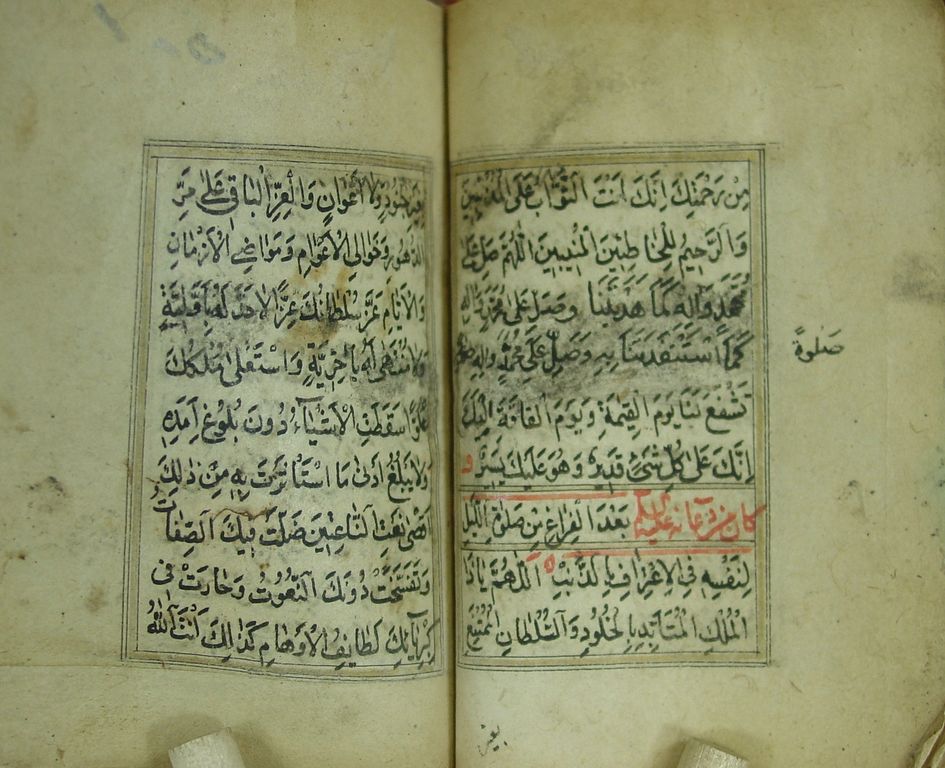 مِنْ رَحْمَتِكَ اِنَّكَ اَنْتَ التَّوَّابُ عَلَى الْمُذْنِبِينَ
وَالرَّحِيمُ لِلْخَاطِئِينَ الْمُنِيبِينَ اَللّٰهُمَّ صَلِّ عَلٰى
مُحَمَّدٍ وَاٰلِهِ كَمَا هَدَيْتَنَا بِهِ وَصَلِّ عَلٰى مُحَمَّدٍ وَاٰلِهِ
كَمَا اسْتَنْقَذْتَنَا بِهِ وَصَلِّ عَلٰى مُحَمَّدٍ وَاٰلِهِ صلوة
تَشْفَعُ لَنَا يَوْمَ الْقِيٰمَةِ وَيَوْمَ الْفَاقَةِ اِلَيْكَ
اِنَّكَ عَلٰى كُلِّ شَيْءٍ قَدِيرٌ وَهُوَ عَلَيْكَ يَسِيرٌ و
كان من دعائه عليه السلام بَعْدَ الْفَرَاغِ مِنْ صَلٰوةِ اللَّيْلِ
لِنَفْسِهِ فِي الْاِعْتِرَافِ بِالذَّنْبِ اَللّٰهُمَّ يَا ذَا
الْمُلْكِ الْمُتَاَبِّدِ بِالْخُلُودِ وَالسُّلْطَانِ الْمُمْتَنِعِ
صَلٰوةً
بغير
بِغَيْرِ جُنُودٍ وَلَا اَعْوَانٍ وَالْعِزِّ الْبَاقِي عَلٰى مَرِّ
الدُّهُورِ وَخَوَالِي الْاَعْوَامِ وَمَوَاضِي الْاَزْمَانِ
وَالْاَيَّامِ عَزَّ سُلْطَانُكَ عِزًّا لَا حَدَّ لَهُ بِاَوَّلِيَّةٍ
وَلَا مُنْتَهٰى لَهُ بِاٰخِرِيَّةٍ وَاسْتَعْلٰى مُلْكُكَ
عُلُوًّا سَقَطَتِ الْاَشْيَاءُ دُونَ بُلُوغِ اَمَدِهِ
وَلَا يَبْلُغُ اَدْنٰى مَا اسْتَاْثَرْتَ بِهِ مِنْ ذٰلِكَ
اَقْصٰى نَعْتِ النَّاعِتِينَ ضَلَّتْ فِيكَ الصِّفَاتُ
وَتَفَسَّخَتْ دُونَكَ النُّعُوتُ وَحَارَتْ فِي
كِبْرِيَائِكَ لَطَائِفُ الْاَوْهَامِ كَذٰلِكَ اَنْتَ اللّٰهُ